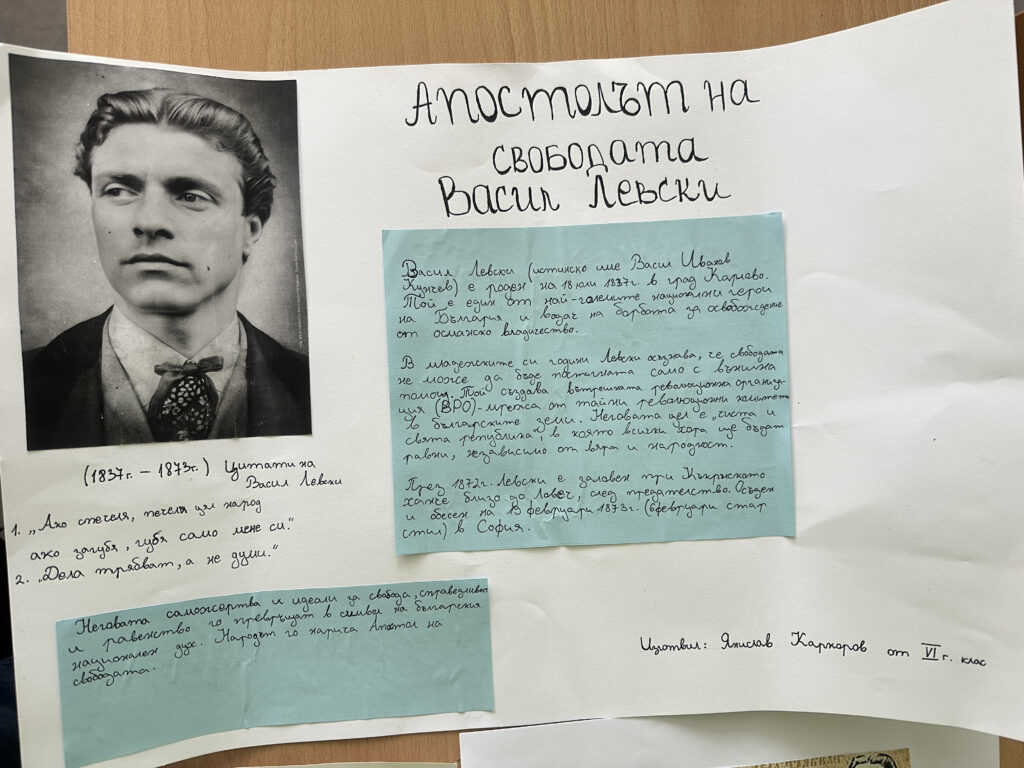 Апостолът на
свободата
Васил Левски
Васил Левски (истинско име Васил Иванов
Кунчев) е роден на 18 юли 1837г. в град Карлово.
Той е един от най-големите национални герои
на България и водач на борбата за освобождение
от османско владичество.
В младежките си години Левски осъзнава, че свободата
не може да бъде постигната само с външна
помощ. Той създава вътрешната революционна организа-
ция (ВРО)-мрежа от тайни революционни комитети
в българските земи. Неговата цел е „чиста и
свята република", в която всички хора ще бъдат
равни, независимо от вяра и народност.
През 1872г. Левски е заловен при Къкринското
ханче близо до Ловеч, след предателство. Осъден
и обесен на 18 февруари 1873г. (6февруари стар
стил) в София.
(1837г. – 1873г.) Цитати на
Васил Левски
1. „Ако спечеля, печеля цял народ
ако загубя, губя само мене си."
2. „Дела трябват, а не думи."
Неговата саможертва и идеали за свобода, справедливост
и равенство го превръщат в символ на българския
национален дух. Народът го нарича Апостол на
свободата.
Изготвил: Янислав от VI г. клас